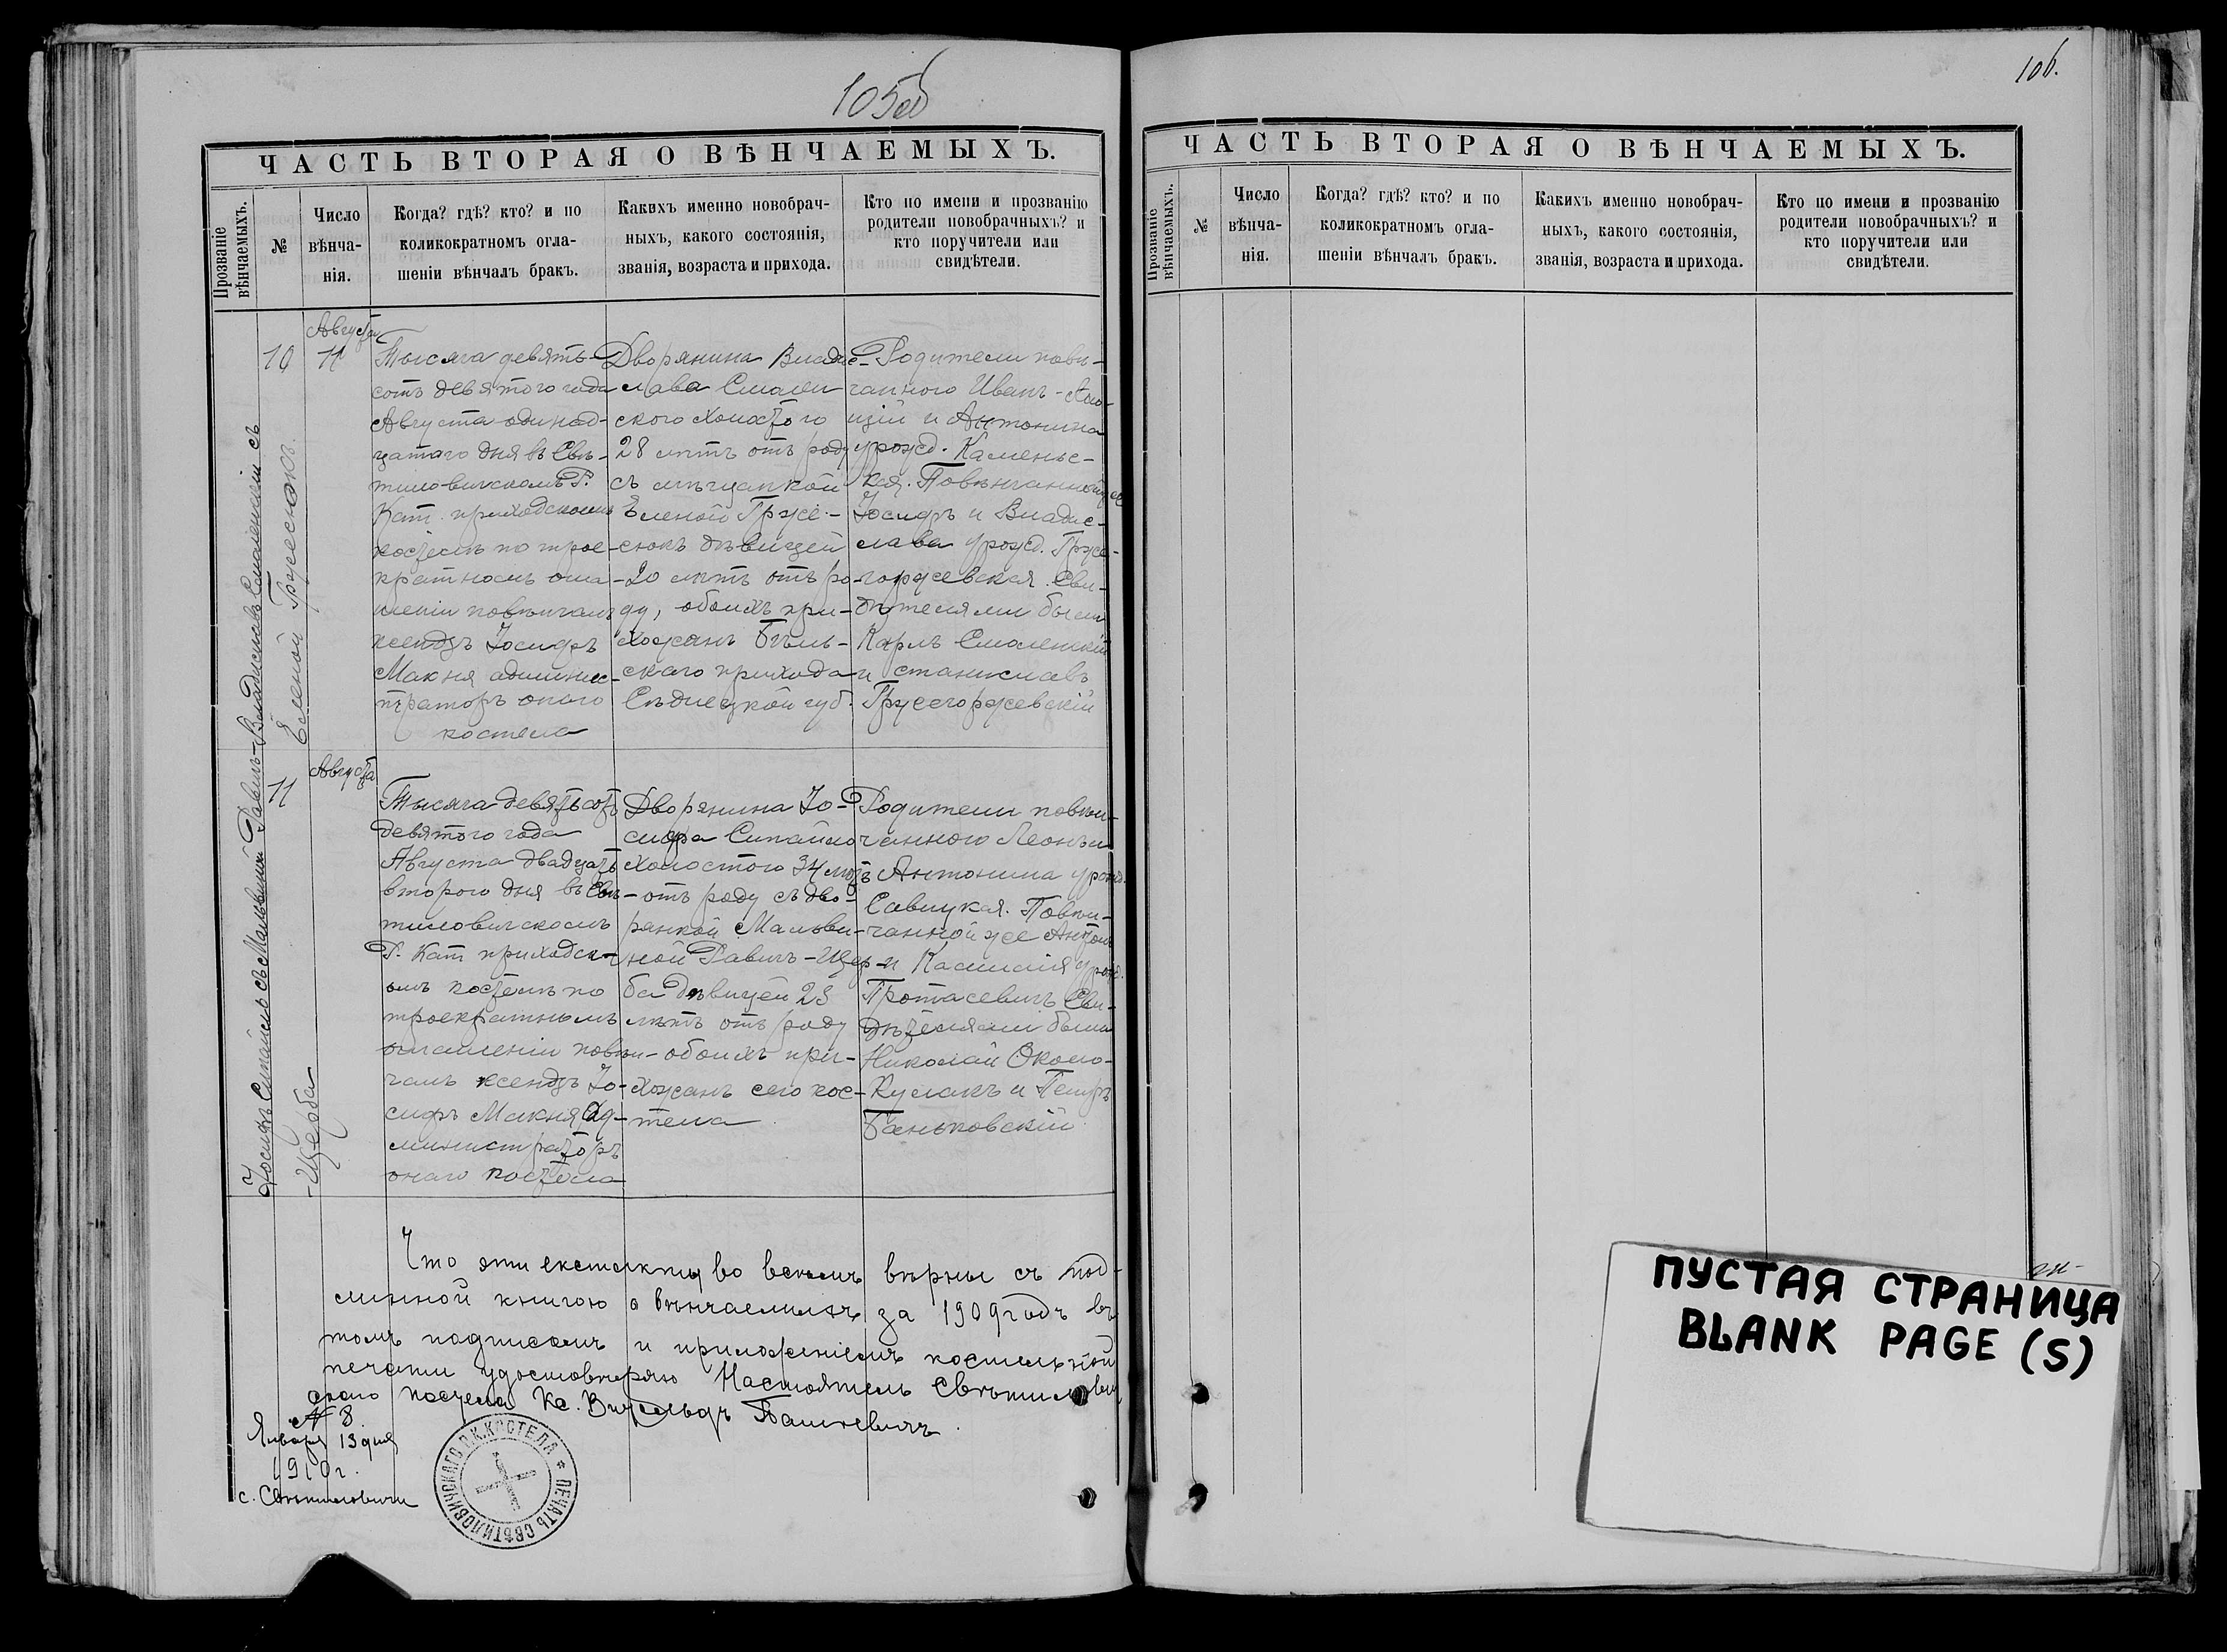 105об
ЧАСТЬ ВТОРАЯ О ВѢНЧАЕМЫХЪ.
Прозваніе вѣнчаемыхъ.
№
Число вѣнча-
нія.
Когда? гдѣ? кто? и по
коликократномъ огла-
шеніи вѣнчалъ бракъ.
Какихъ именно новобрач-
ныхъ, какого состоянія,
званія, возраста и прихода.
Кто по имени и прозванію
родители новобрачныхъ? и
кто поручители или
свидѣтели.
съ
Еленой Грусеюкъ.
10
Августа
11
Тысяча девять-
сотъ девятого года
Августа одинад-
цатаго дня въ Свѣ-
тиловичскомъ Р.
Кат. приходскомъ
костелѣ по трое-
кратномъ огла-
шеніи повѣнчалъ
ксендзъ Іосифъ
Макня админис-
траторъ оного
костела
Дворянина Владис-
лава Смолен
ского холостого
28 лѣтъ отъ роду
съ мѣщанкой
Еленой Грусе-
сюкъ дѣвицей
20 лѣтъ отъ ро-
ду, обоихъ при-
хожанъ Бѣль-
скаго прихода
Сѣдлецкой губ.
Родители повѣн-
чанного Иванъ-
и Антонина
урожд. Каменьс-
кая. Повѣнчанной же
Іосифъ и Владис-
лава урожд.
Сви-
дѣтелями были
Карлъ Смоленскій
и Станиславъ
Іосифъ Сипайло съ Мальвиной Равичъ-
-Щерба
11
Августа
Тысяча девятьсотъ
девятого года
Августа двадцать
второго дня въ Свѣ-
тиловичскомъ
Р. Кат приходск-
омъ костелѣ по
троекратномъ
оглашеніи повѣн-
чалъ ксендзъ Іо-
сифъ Макня Ад-
министраторъ
онаго костела
Дворянина Іо-
сифа Сипайло
холостого 34 лѣтъ
отъ роду съ дво-
рянкой Мальви-
ной Равичъ-Щер-
ба дѣвицей 25
лѣтъ отъ роду
обоихъ при-
хожанъ сего кос-
тела
Родители повѣн-
чанного Леонъ и
Антонина урожд.
Савицкая. Повѣн-
чанной же Антонъ
и Касилія урожд.
Протасевичъ Сви-
дѣтелями были
Николай Около-
Кулакъ и Петръ
Баньковскій
Что эти екстракты во всемъ вѣрны съ под-
линной книгою о вѣнчаемыхъ за 1909 годъ въ
томъ подписомъ и приложеніемъ костельной
печати удостовѣряю Настоятель Свѣтилович
скаго костела Кс. Пашкевичъ.
№ 8
Января 13 дня
1910 г.
с. Свѣтиловичи
ПЕЧАТЬ СВѢТИЛОВИЧСКАГО Р.К.КОСТЕЛА *
106.
ЧАСТЬ ВТОРАЯ О ВѢНЧАЕМЫХЪ.
Прозваніе вѣнчаемыхъ.
№
Число
вѣнча-
нія.
Когда? гдѣ? кто? и по
коликократномъ огла-
шеніи вѣнчалъ бракъ.
Какихъ именно новобрач-
ныхъ, какого состоянія,
званія, возраста и прихода.
Кто по имени и прозванію
родители новобрачныхъ? и
кто поручители или
свидѣтели.
ПУСТАЯ СТРАНИЦА
BLANK PAGE (S)